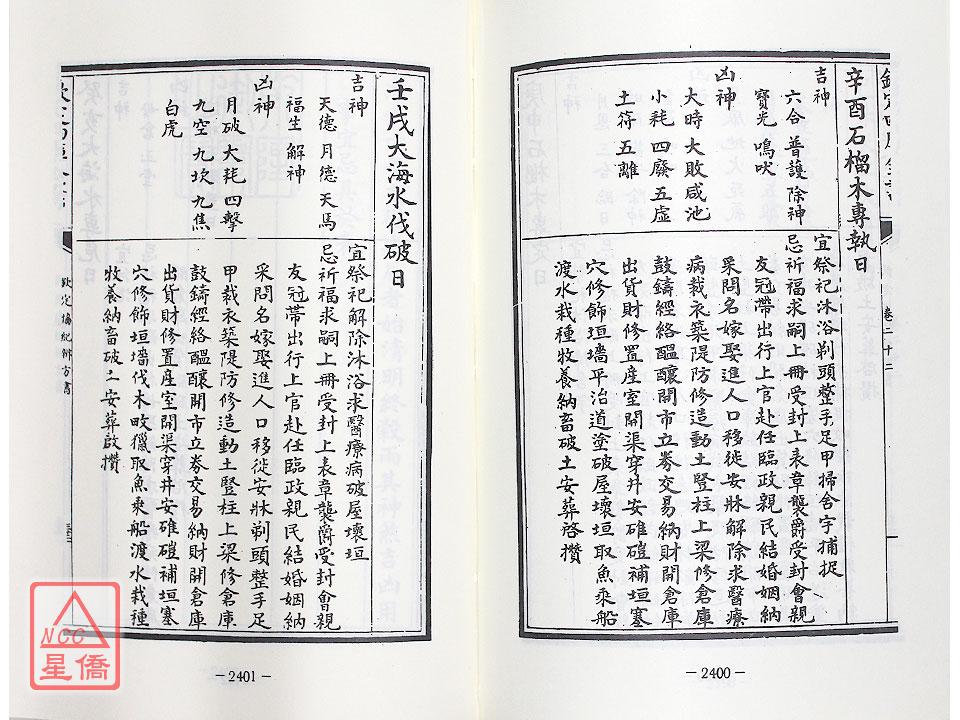 辛酉石榴木專執日
吉神
六合 普護 除神
寶光 鳴吠
凶神
大時 大敗 咸池
小耗 四廢 五虛
土符 五離
宜祭祀沐浴剃頭整手足甲掃舍宇捕捉
忌祈福求嗣上冊受封上表章襲爵受封會親
友冠帶出行上官赴任臨政親民結婚姻納
采問名嫁娶進人口移徙安牀解除求醫療
病裁衣築隄防修造動土豎柱上梁修倉庫
鼓鑄經絡醞釀開市立券交易納財開倉庫
出貨財修置產室開渠穿井安碓磑補垣塞
穴修飾垣墻平治道塗破屋壞垣取魚乘船
渡水栽種牧養納畜破土安葬啓攢
卷二十二
－2400－
壬戌大海水伐破日
吉神
天德 月德 天馬
福生 解神
凶神
月破 大耗 四擊
九空 九坎 九焦
白虎
宜祭祀解除沐浴求醫療病破屋壞垣
忌祈福求嗣上冊受封上表章襲爵受封會親
友冠帶出行上官赴任臨政親民結婚姻納
采問名嫁娶進人口移徙安牀剃頭整手足
甲裁衣築隄防修造動土豎柱上梁修倉庫
鼓鑄經絡醞釀開市立券交易納財開倉庫
出貨財修置產室開渠穿井安碓磑補垣塞
穴修飾垣墻伐木畋獵取魚乘船渡水栽種
牧養納畜破土安葬啟攢
欽定協紀辨方書
－2401－
NCC
星僑